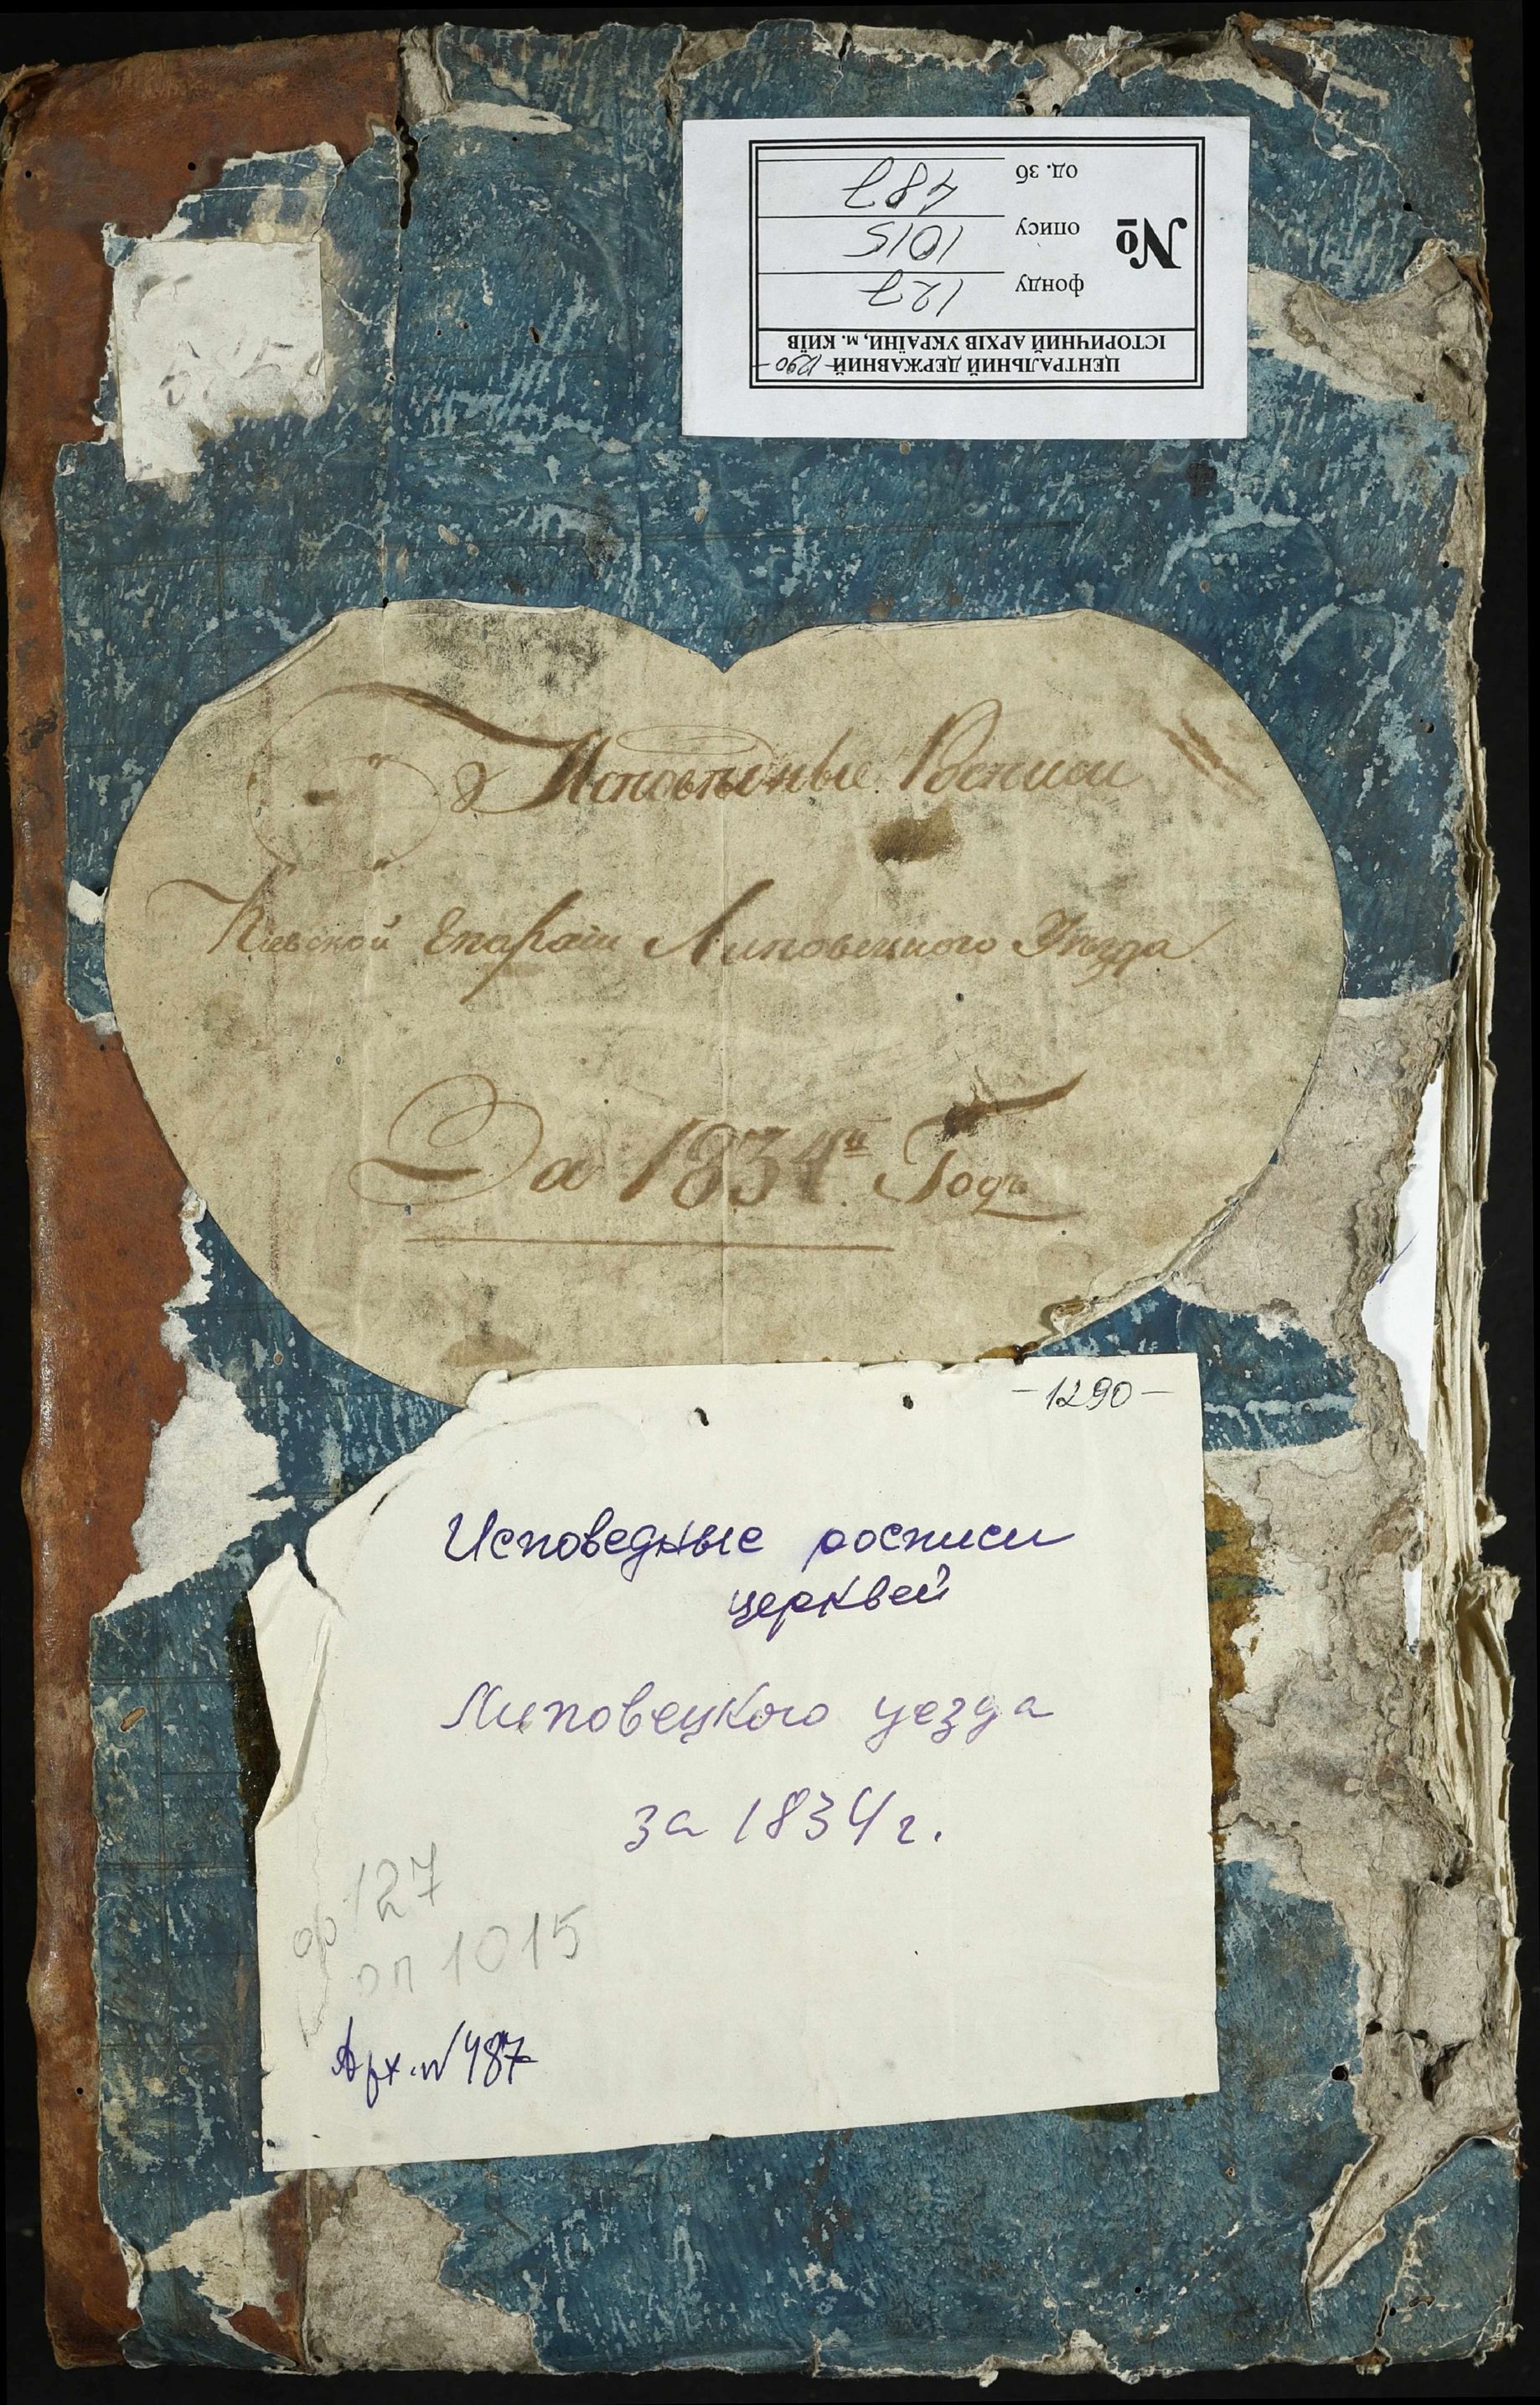 ЦЕНТРАЛЬНИЙ ДЕРЖАВНИЙ -1290-
ІСТОРИЧНИЙ АРХІВ УКРАЇНИ, м. КИЇВ
№
фонду 127
опису 1015
од. зб 487
Исповѣдныe Росписи
Кіевской Епархіи Липовецкого Уѣзда
За 1834й Годъ
-1290-
Исповедные росписи
церквей
Липовецкого уезда
за 1834 г.
ф 127
оп 1015
Арх. № 487